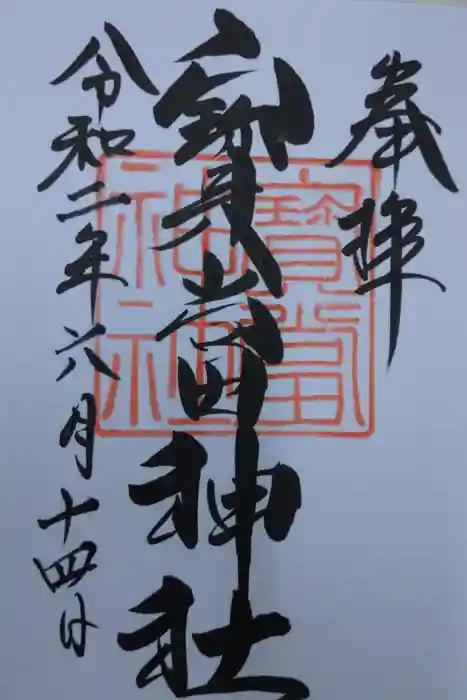 奉拝
寳當神社
令和二年六月十四日
寳當
神社